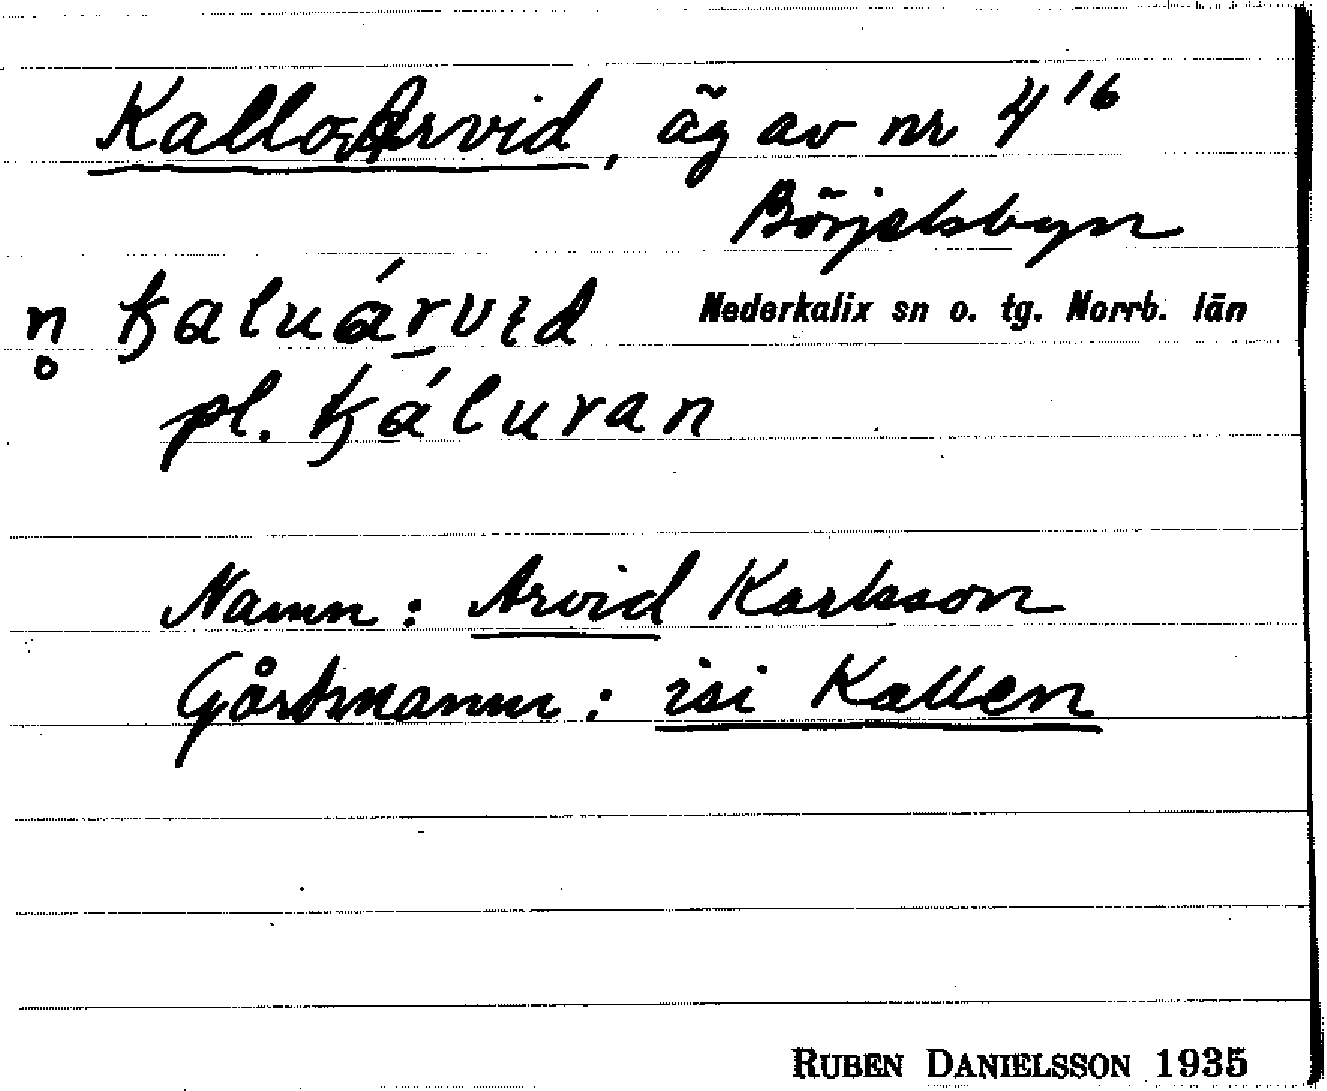 Kallo-Arvid, äg av nr 4¹⁶
Börjelsbyn
Nederkalix sn o. tg. Norrb. län
n̥ ꝁaluárvıd
pl. ꝁáluran
Namn: Arvid Karlsson
Gårdsnamn: isi Kallen
RUBEN DANIELSSON 1935